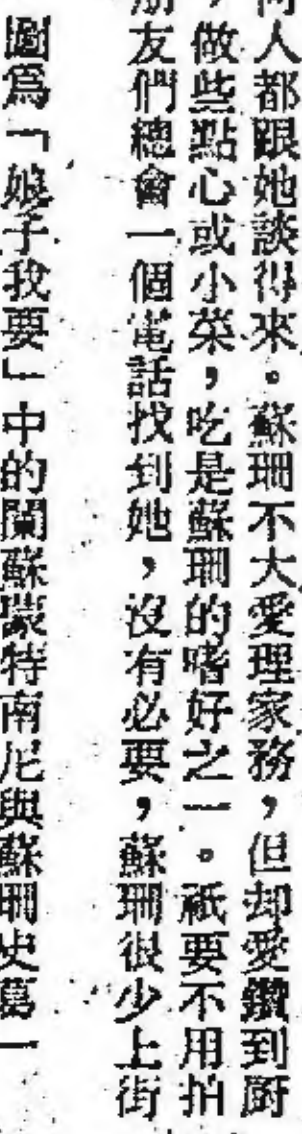 人都跟她談得來。蘇珊不大愛理家務,但却愛鑽到厨
,做些點心或小菜,吃是蘇珊的嗜好之一。祇要不用拍
友們總會一個電話找到她,沒有必要,蘇珊很少上街
圖爲「娘子我要」中的蘭蘇蒙特南尼與蘇珊史篤一